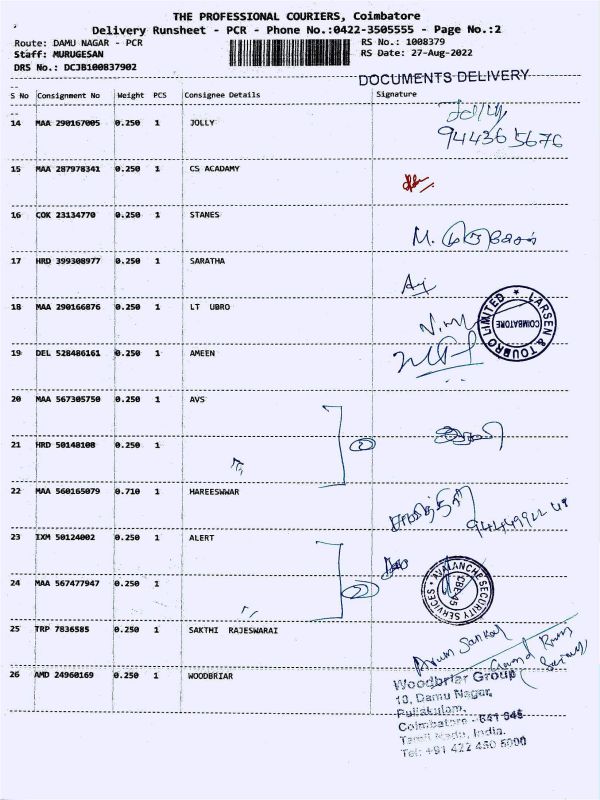 THE PROFESSIONAL COURIERS, Coimbatore
Delivery Runsheet - PCR - Phone No.:0422-3505555 - Page No.:2
Route: DAMU NAGAR - PCR
RS No.: 1008379
Staff: MURUGESAN
RS Date: 27-Aug-2022
DRS No.: DCJB100837902
DOCUMENTS DELIVERY
S No Consignment No Weight PCS Consignee Details Signature
14 MAA 290167005 0.250 1 JOLLY Jolly
944365676
15 MAA 287978341 0.250 1 CS ACADAMY
16 COK 23134770 0.250 1 STANES
17 HRD 399308977 0.250 1 SARATHA
18 MAA 290166876 0.250 1 LT UBRO
LARSEN & TOUBRO LIMITED
COIMBATORE
19 DEL 528486161 0.250 1 AMEEN
20 MAA 567305750 0.250 1 AVS
21 HRD 50148108 0.250 1
22 MAA 560165079 0.710 1 HAREESWWAR
23 IXM 50124002 0.250 1 ALERT
24 MAA 567477947 0.250 1
AVALANCHE SECURITY SERVICES
CBE-45
25 TRP 7836585 0.250 1 SAKTHI RAJESWARAI
Arum Sankar
26 AMD 24960169 0.250 1 WOODBRIAR
Woodbriar Group
Damu Nagar,
Puliakulam,
Coimbatore - 641 045
Tamil Nadu, India.
Tel: +91 422 450 5000